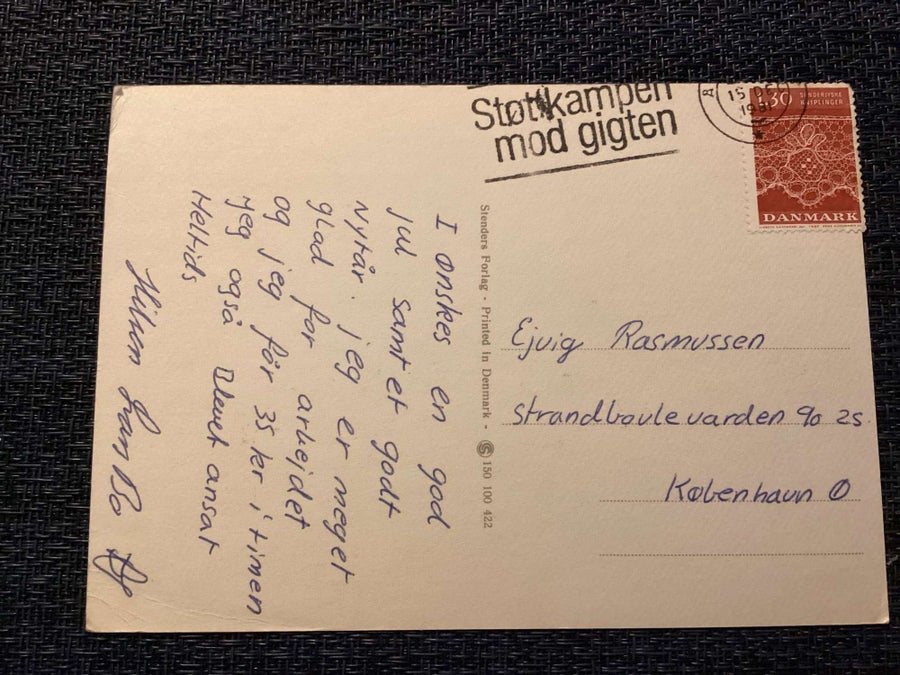 Støt kampen
mod gigten
15 DEC
1981
130 SØNDERJYSKE
KNIPLINGER
DANMARK
I ønskes en god
jul samt et godt
nytår. jeg er meget
glad for arbejdet
og jeg får 35 kr i timen
jeg også blevet ansat
Heltids
Hilsen Lars Bo
Stenders Forlag - Printed in Denmark - S 150 100 422
Ejvig Rasmussen
Strandboulevarden 90 2s.
København Ø